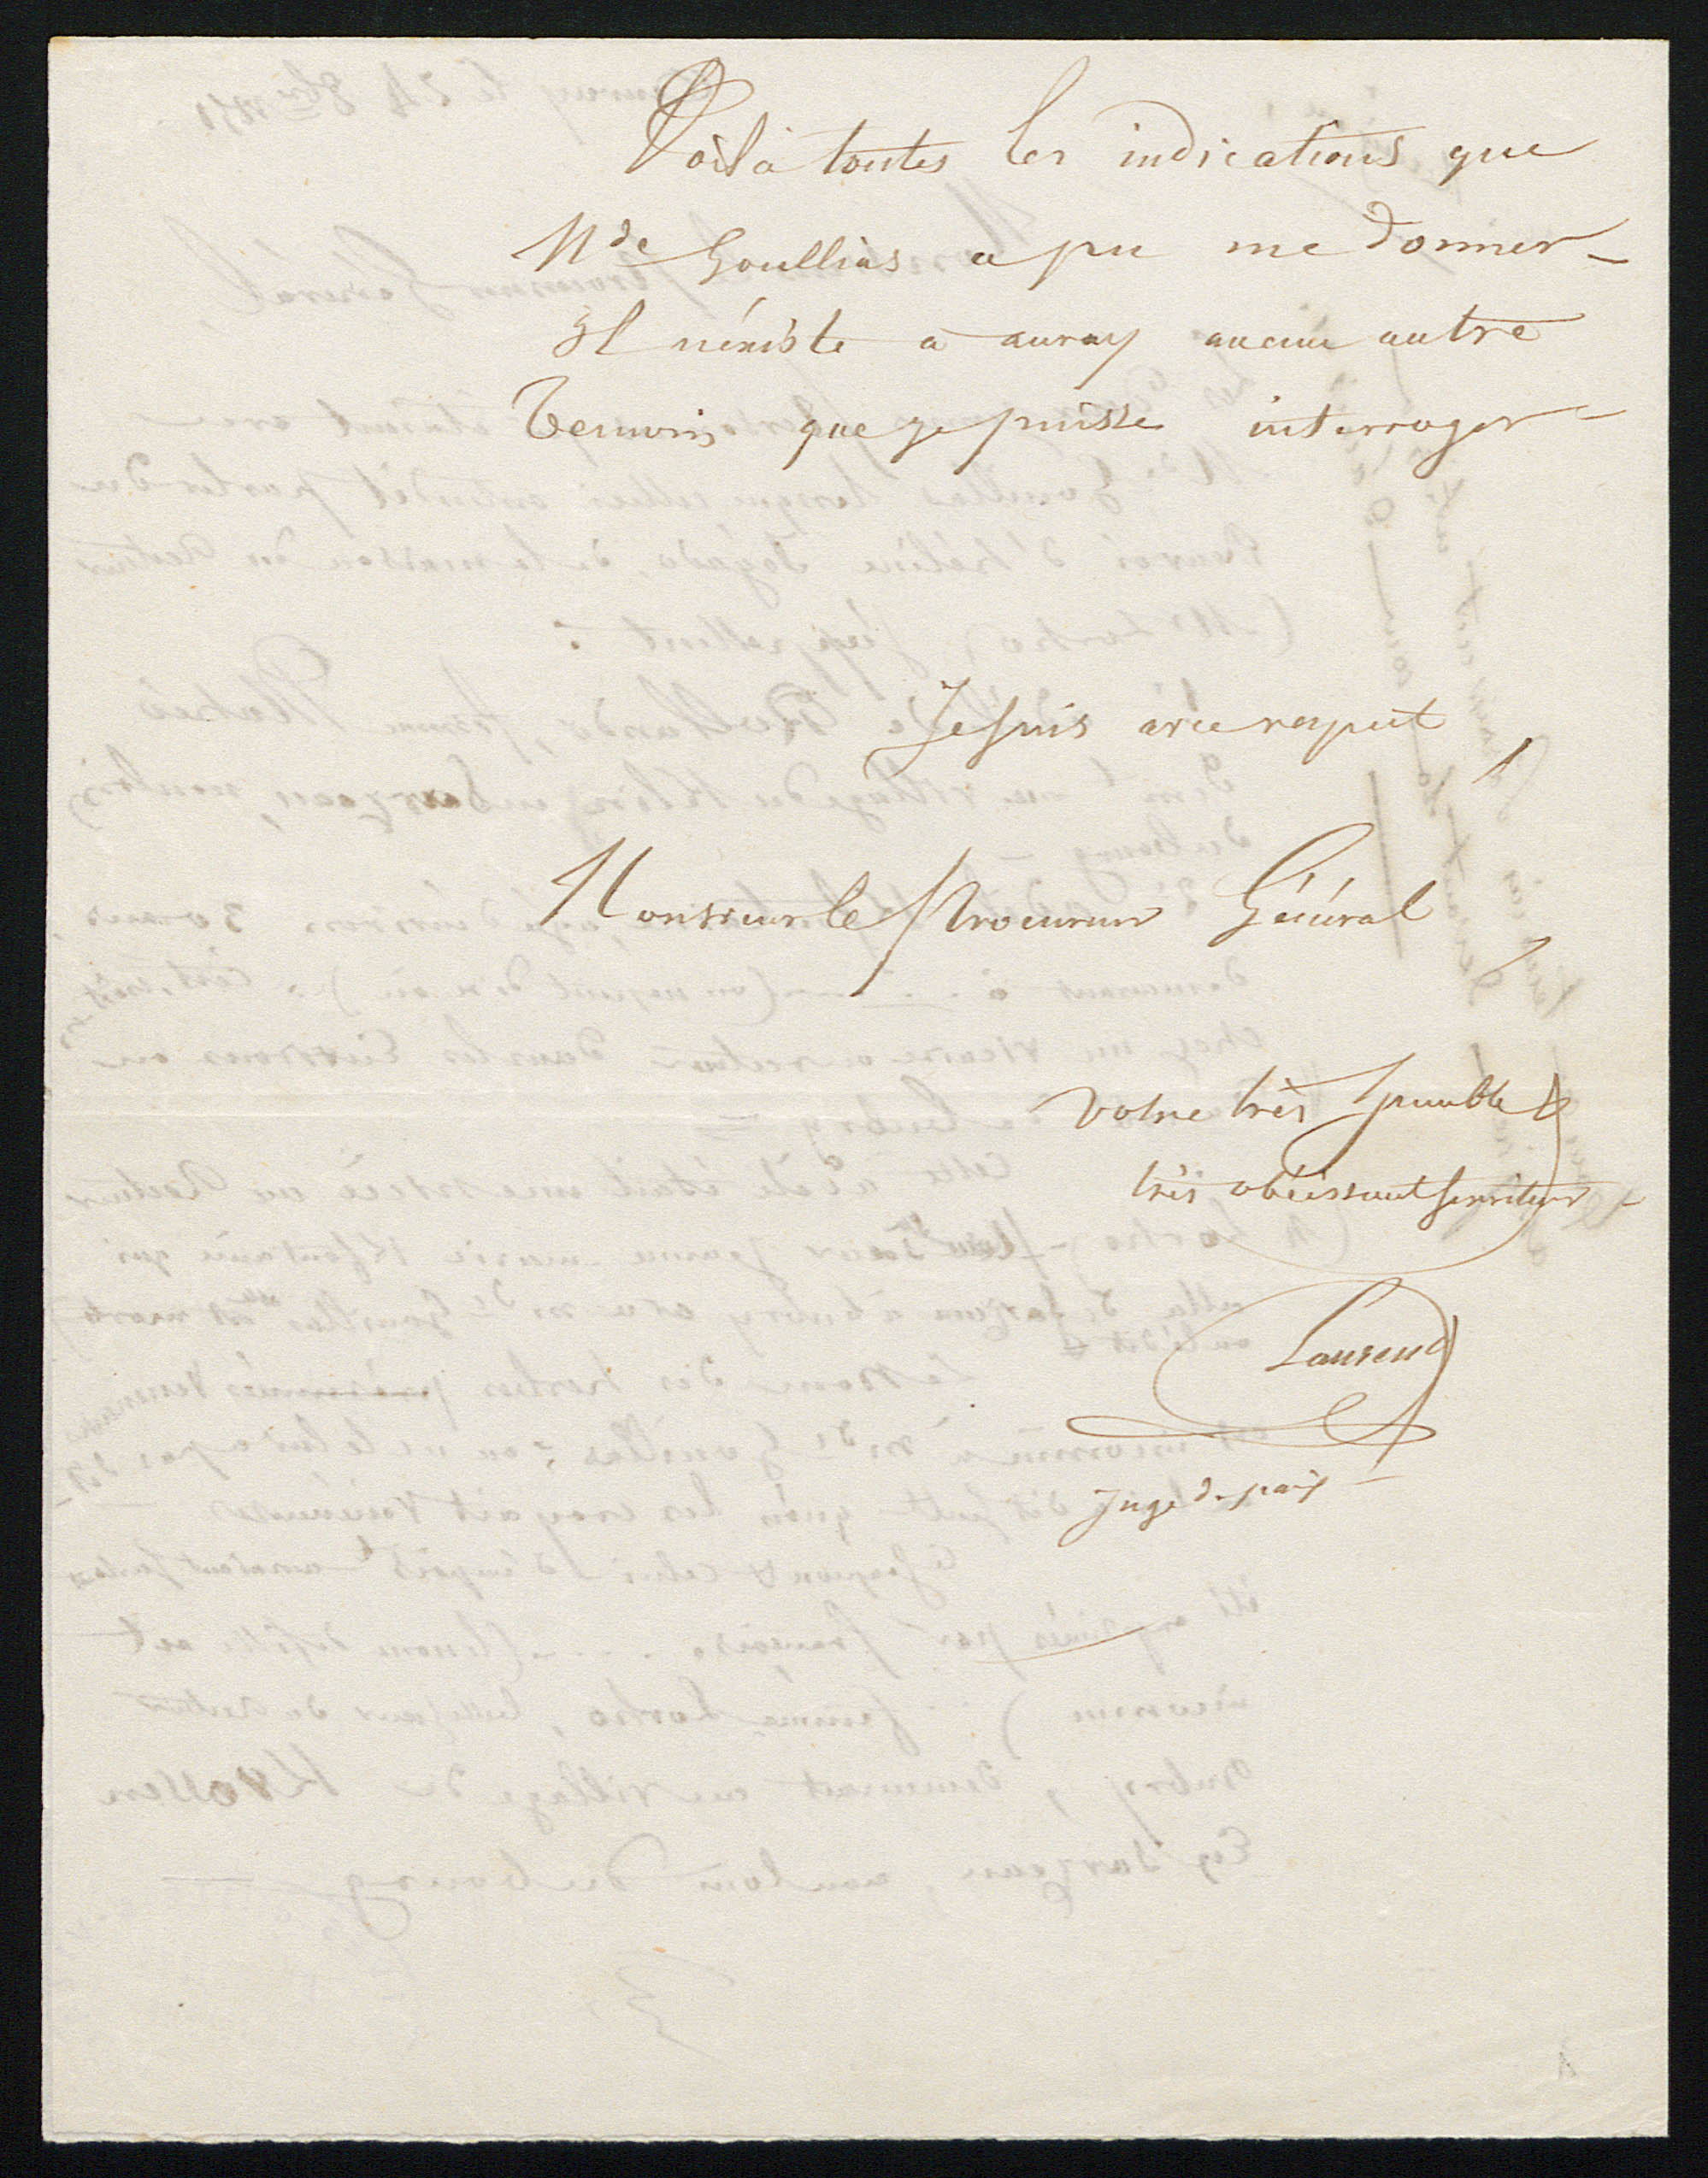 Voilà toutes les indications que
Mde Goullias a pu me donner _
Il n'éxiste a auray aucun autre
temoin que je puisse interroger _
Je suis avec respect,
Monsieur le Procureur Général,
votre très humble &
très obéissant serviteur _
Laurent
Juge de paix _